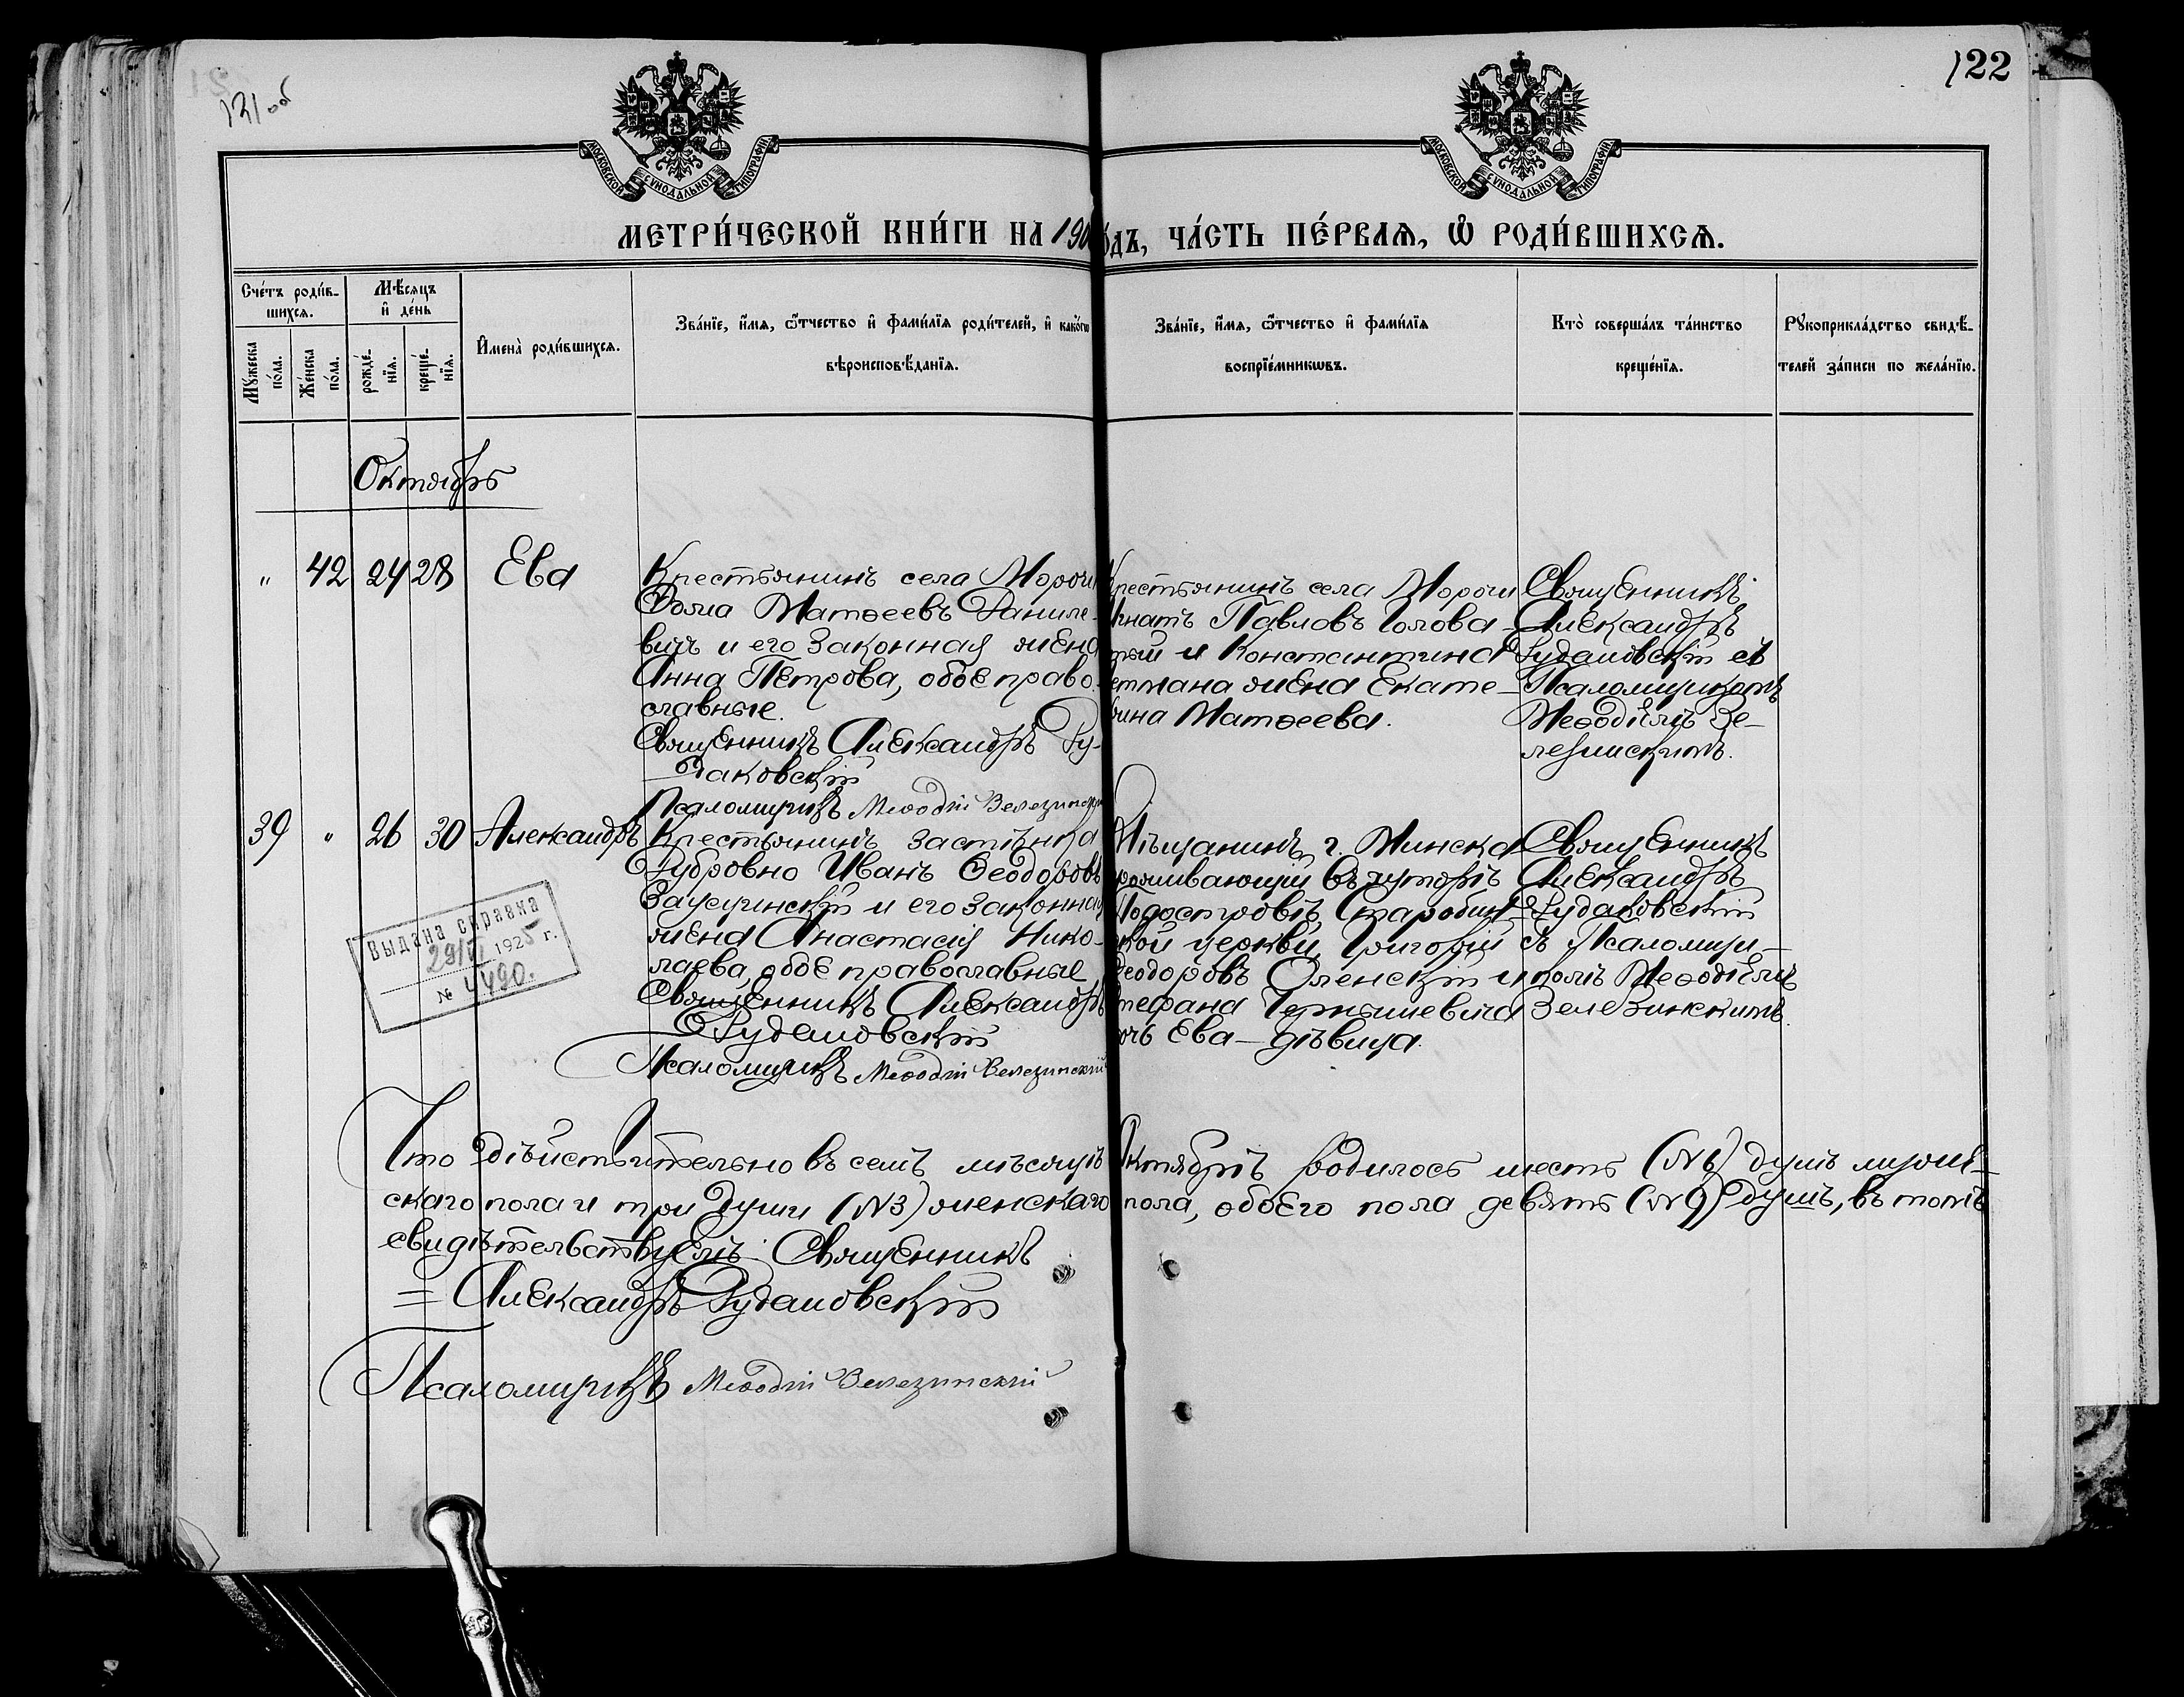 131 об
122
МОСКОВСКОЙ СУНОДАЛЬНОЙ ТИПОГРАФІИ
МОСКОВСКОЙ СУНОДАЛЬНОЙ ТИПОГРАФІИ
МЕТРИ́ЧЕСКОЙ КНИ́ГИ НА 190
ѻдъ, ЧА́СТЬ ПЕ́РВАѦ, Ѡ҆ РОДИ́ВШИХСѦ.
Сче́тъ роди́в-
шихсѧ.
Мѣ́сѧцъ
и҆ де́нь
Мꙋ́жеска
по́ла.
Же́нска
по́ла.
рожде́-
нїѧ.
креще́-
нїѧ.
И҆мена̀ роди́вшихсѧ.
Зва́нїе, и҆́мѧ, ѻ҆́тчество и҆ фами́лїѧ роди́телей, и҆ како́гѡ
вѣроисповѣ́данїѧ.
Зва́нїе, и҆́мѧ, ѻ҆́тчество и҆ фами́лїѧ
воспрїе́мникѡвъ.
Кто̀ соверша́лъ та́инство
креще́нїѧ.
Рꙋкоприкла́дство свидѣ́-
телей за́писи по жела́нїю.
Октябрь
" 42 24 28 Ева
Крестьянинъ села Морочи
Фома Матѳеевъ Даниле-
вичъ и его законная жена
Анна Петрова, обое право-
славные.
Священникъ Александръ Ру-
даковскій
Псаломщикъ Меѳодій Велезинскій
Крестьянинъ села Морочи
Игнатъ Павловъ Голова-
тый и Константина
жена Екате-
рина Матѳеева.
Священникъ
Александръ
Рудаковскій съ
Псаломщикомъ
Меѳодіемъ Ве-
лезинскимъ.
39 " 26 30 Александръ
Крестьянинъ застѣнка
Дубровно Иванъ Ѳеодоровъ
и его законная
жена Анастасія Нико-
лаева, обое православные
Священникъ Александръ
Рудаковскій
Псаломщикъ Меѳодій Велезинскій
Мѣщанинъ г. Минска
проживающій въ хуторѣ
Подостровѣ, Старобин-
ской церкви, Григорій
Ѳеодоровъ Оленскій и
Стефана Чернышевича
дочь Ева - дѣвица.
Священникъ
Александръ
Рудаковскій
съ Псаломщи-
комъ Меѳодіемъ
Велезинскимъ.
Выдана справка
29/VI 1925 г.
№ 4490.
Что дѣйствительно въ семъ мѣсяцѣ Октябрѣ родилось шесть (№6) душъ муже-
скаго пола и три души (№3) женскаго пола, обоего пола девять (№9) душъ, въ томъ
свидѣтельствуемъ: Священникъ
= Александръ Рудаковскій
Псаломщикъ Меѳодій Велезинскій